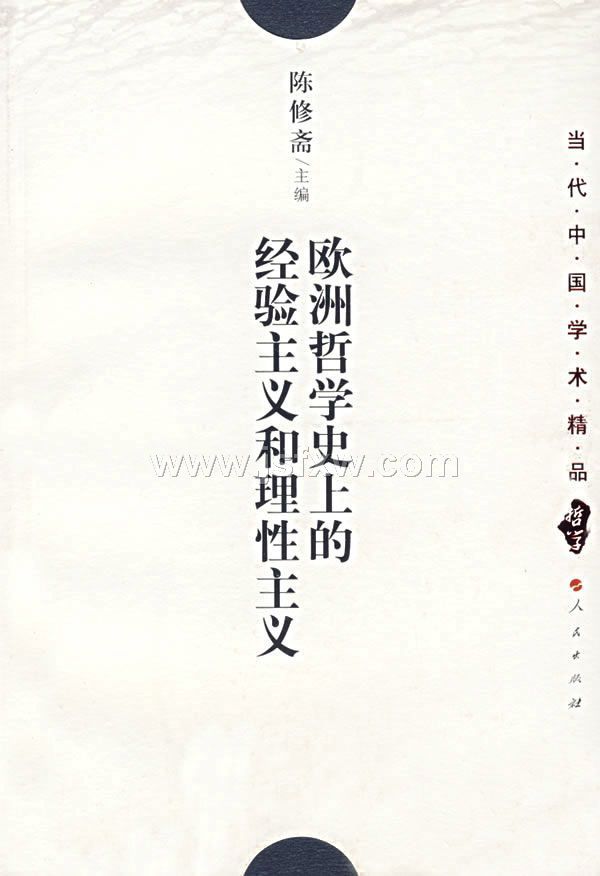 陈修斋/主编
欧洲哲学史上的
经验主义和理性主义
当·代·中·国·学·术·精·品
哲学
人民出版社
www.jsfxw.com